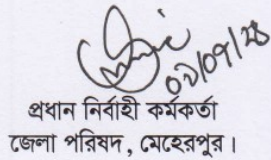 ০৯/০৭/২৪
প্রধান নির্বাহী কর্মকর্তা
জেলা পরিষদ, মেহেরপুর।